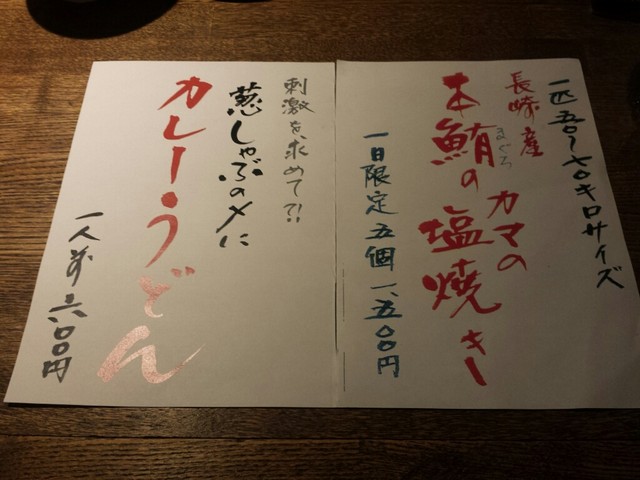 一匹五〇〜七〇キロサイズ
長崎産
本鮪のカマの塩焼き
まぐろ
一日限定五個一、五〇〇円
刺激を求めて?!
葱しゃぶの〆に
カレーうどん
一人前六〇〇円